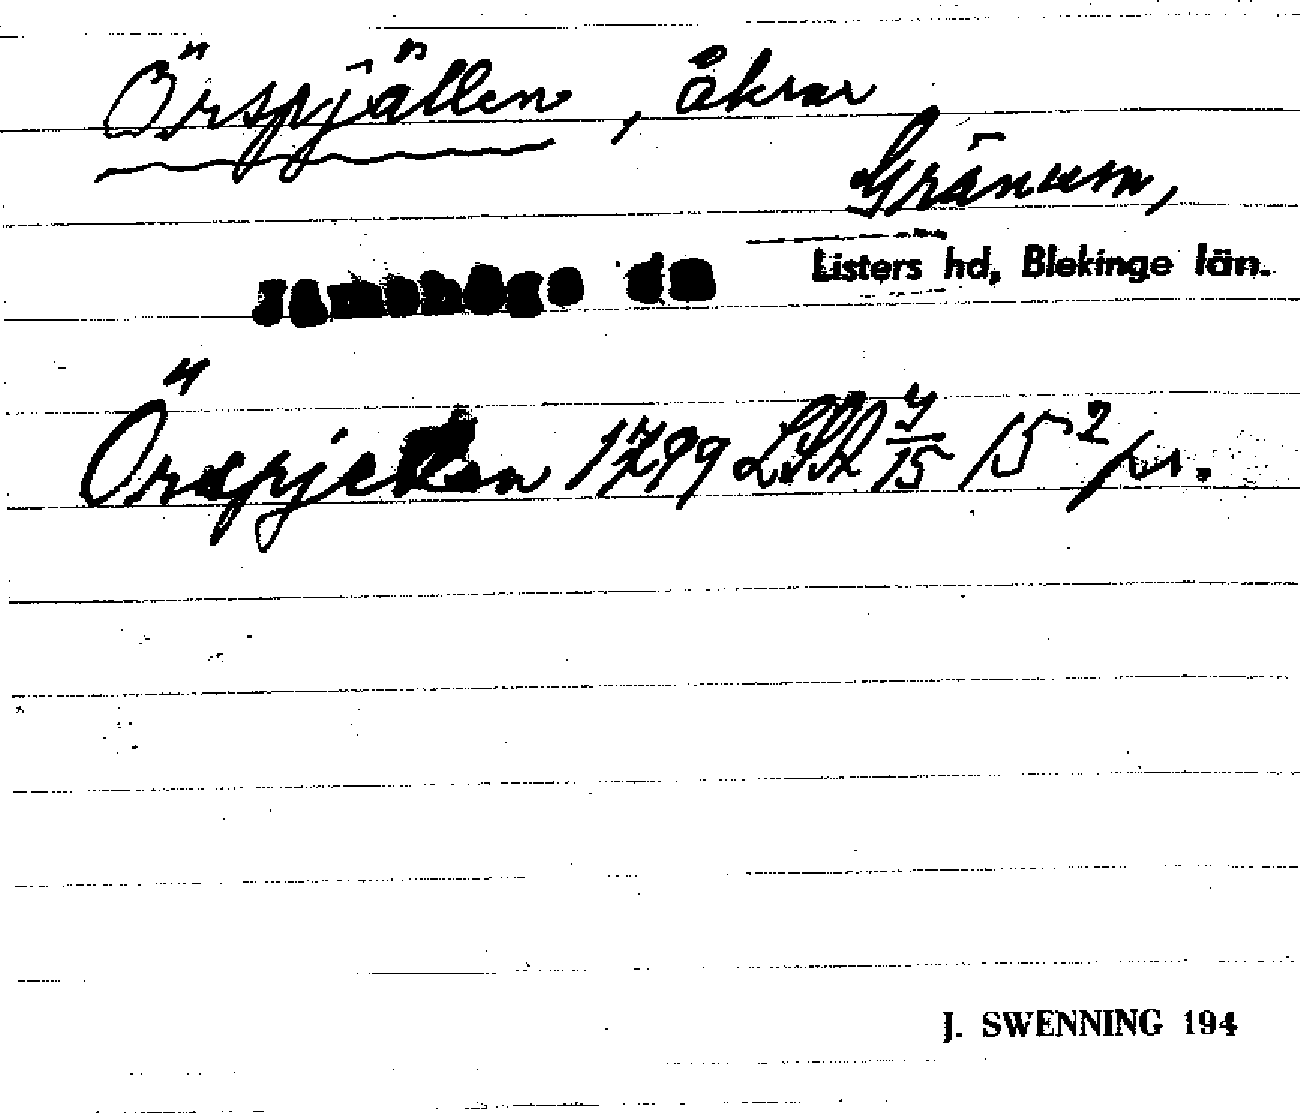 Örspjällen, åkrar
Gränum,
Jämshögs sn
Listers hd, Blekinge län.
Örspjellen 1799 LSA 7/15 15² pr.
J. SWENNING 194